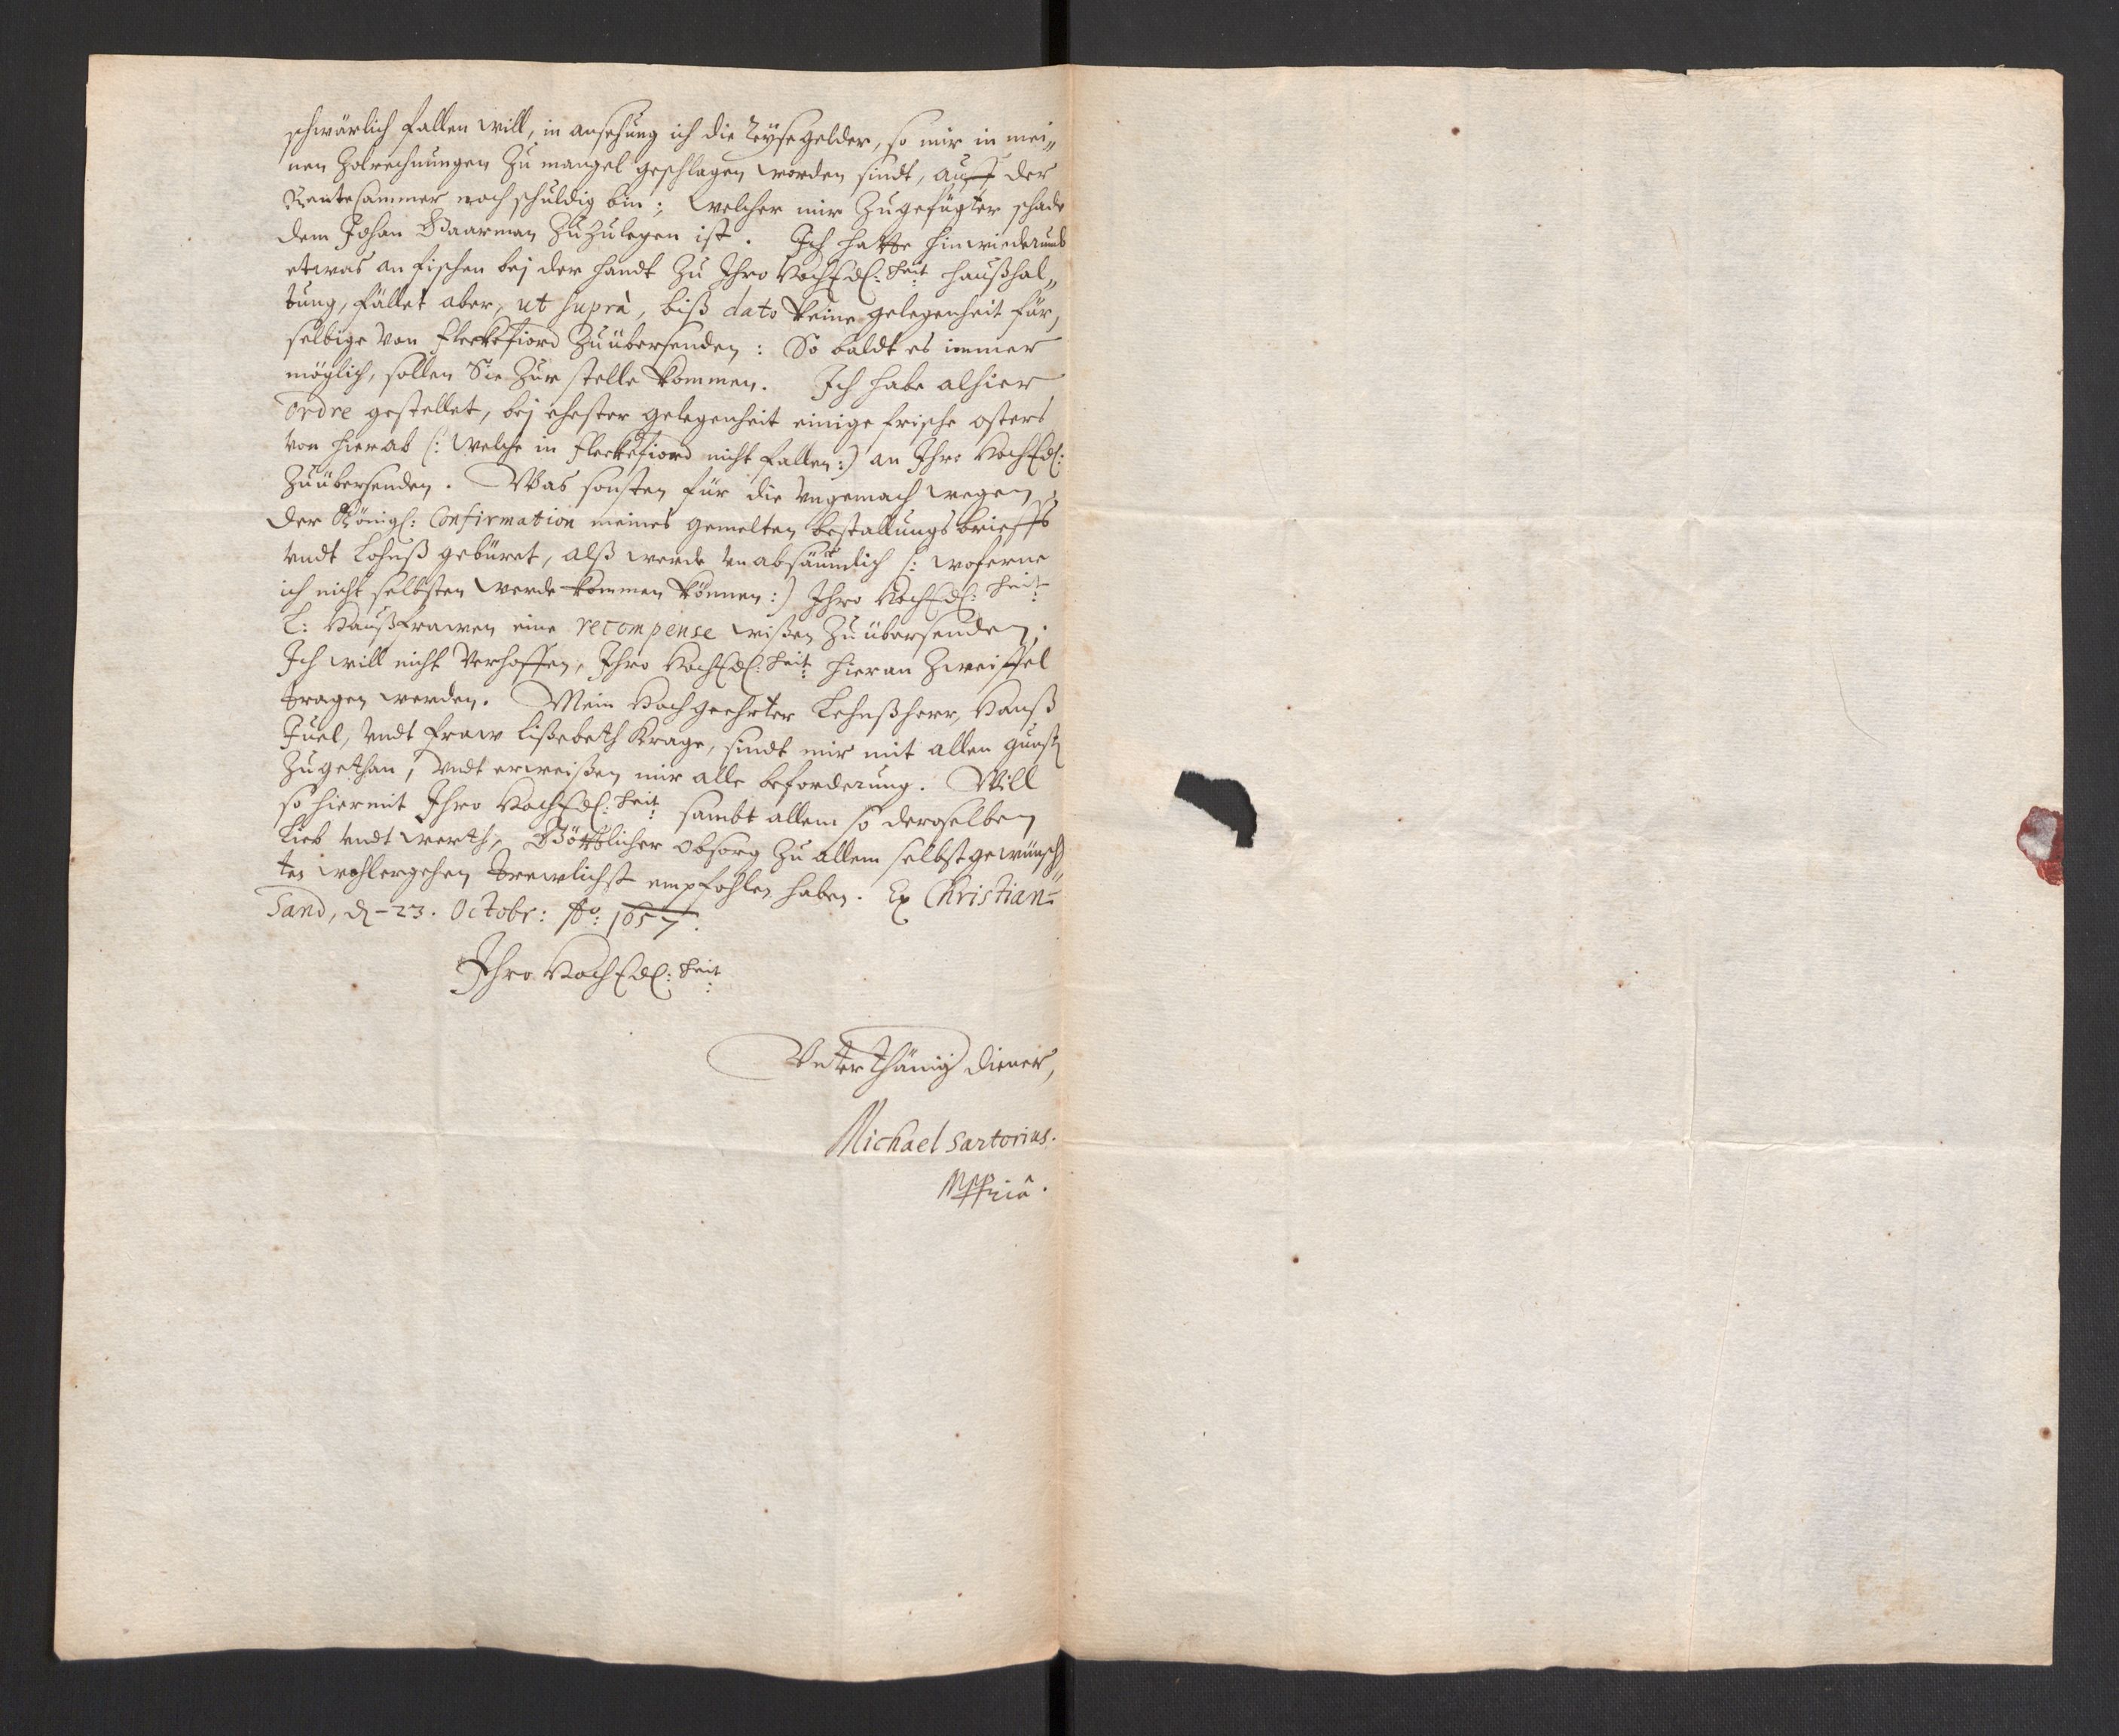 schwärlich fallen will, in ansehung ich die Reÿsegelder, so mir in mei„
nen Zolrechnungen zu mangel geschlagen worden sindt, auff der
Rentecammer noch schuldig bin; welcher mir zugefügter schade
dem Johan Gaarman zuzulegen ist. Ich hatte hinwiederumb
etwas an fischen bej der handt zu Ihro HochEdl: heit: haußhal„
tung, fället aber, ut suprà, biß dato keine gelegenheit für,
selbige von fleckefiord zuübersenden: So baldt es immer
möglich, sollen Sie zur stelle kommen. Ich habe alhier
ordre gestellet, bej ehester gelegenheit einige frische osters
von hierab (: welche in fleckefiord nicht fallen :) an Ihro HochEdl:
zuübersenden. Was sonsten für die vngemach wegen
der Königl: Confirmation meines gemelten bestallungs brieffs
vndt Lohnß gebüret, alß werde vnabsäumlich (: woferne
ich nicht selbsten werde kommen können :) Ihro HochEdl: heit:
L: Haußfrawen eine recompense wißen zuübersenden;
Ich will nicht verhoffen, Ihro HochEdl: heit: hieran zweiffel
tragen werden. Mein Hochgeehrter Lehnßherr, Hanß
Juel, vndt fraw Lißebeth Krage, sindt mir mit allen gunst
zugethan, vndt erweißen mir alle beforderung. Will
so hiermit Ihro HochEdl: heit: sambt allem so deroselben
lieb vndt werth, Göttlicher obsorg zu allem selbst gewünsch„
ten wohlergehen trewlichst empfohlen haben. Ex Christian=
Sand, d. 23. Octobr: Ao: 1657.
Ihro HochEdl: heit:
Vnterthänig diener,
Michael Sartorius.
Mppriâ.